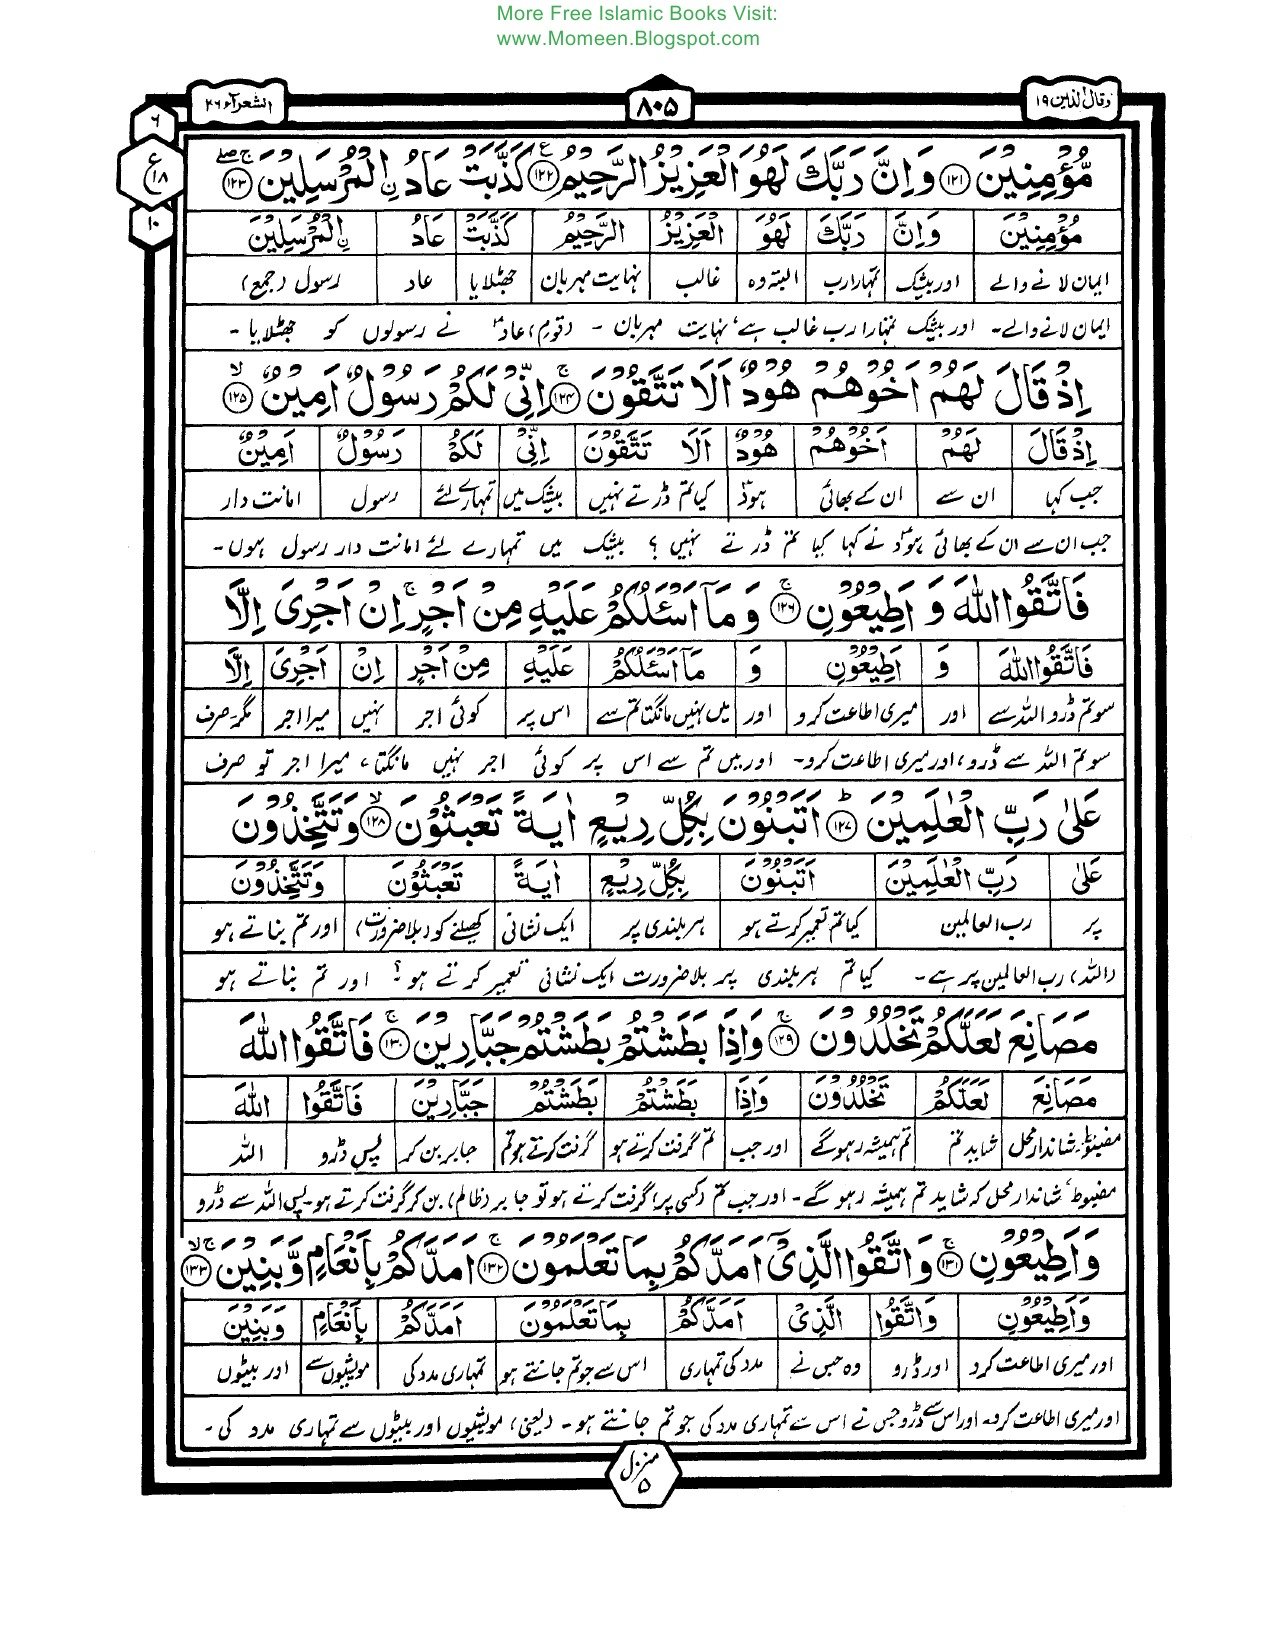 More Free Islamic Books Visit:
www.Momeen.Blogspot.com
وقال الذین ۱۹ ۸۰۵ الشعرآء ۲۶
۶
ع ۱۸
۱۰
مُّؤْمِنِیْنَ ﴿۱۲۱﴾ وَاِنَّ رَبَّكَ لَهُوَ الْعَزِیْزُ الرَّحِیْمُ ﴿۱۲۲﴾ كَذَّبَتْ عَادُ ۨالْمُرْسَلِیْنَ ﴿۱۲۳﴾
مُّؤْمِنِیْنَ وَاِنَّ رَبَّكَ لَهُوَ الْعَزِیْزُ الرَّحِیْمُ كَذَّبَتْ عَادُ ۨالْمُرْسَلِیْنَ
ایمان لانے والے اور بیشک تمہارا رب البتہ وہ غالب نہایت مہربان جھٹلایا عاد رسول (جمع)
ایمان لانے والے۔ اور بیشک تمہارا رب غالب ہے، نہایت مہربان ۔ (قوم) عاد نے رسولوں کو جھٹلایا ۔
اِذْ قَالَ لَهُمْ اَخُوْهُمْ هُوْدٌ اَلَا تَتَّقُوْنَ ﴿۱۲۴﴾ اِنِّیْ لَكُمْ رَسُوْلٌ اَمِیْنٌ ﴿۱۲۵﴾
اِذْ قَالَ لَهُمْ اَخُوْهُمْ هُوْدٌ اَلَا تَتَّقُوْنَ اِنِّیْ لَكُمْ رَسُوْلٌ اَمِیْنٌ
جب کہا ان سے ان کے بھائی ہودؑ کیا تم ڈرتے نہیں بیشک میں تمہارے لئے رسول امانت دار
جب ان سے ان کے بھائی ہودؑ نے کہا کیا تم ڈرتے نہیں ؟ بیشک میں تمہارے لئے امانت دار رسول ہوں۔
فَاتَّقُوا اللّٰهَ وَ اَطِیْعُوْنِ ﴿۱۲۶﴾ وَ مَاۤ اَسْـَٔلُكُمْ عَلَیْهِ مِنْ اَجْرٍ ۚ اِنْ اَجْرِیَ اِلَّا
فَاتَّقُوا اللّٰهَ وَ اَطِیْعُوْنِ وَ مَاۤ اَسْـَٔلُكُمْ عَلَیْهِ مِنْ اَجْرٍ اِنْ اَجْرِیَ اِلَّا
سو تم ڈرو اللہ سے اور میری اطاعت کرو اور میں نہیں مانگتا تم سے اس پر کوئی اجر نہیں میرا اجر مگر۔ صرف
سو تم اللہ سے ڈرو، اور میری اطاعت کرو۔ اور میں تم سے اس پر کوئی اجر نہیں مانگتا، میرا اجر تو صرف
عَلٰی رَبِّ الْعٰلَمِیْنَ ﴿۱۲۷﴾ اَتَبْنُوْنَ بِكُلِّ رِیْعٍ اٰیَةً تَعْبَثُوْنَ ﴿۱۲۸﴾ وَتَتَّخِذُوْنَ
عَلٰی رَبِّ الْعٰلَمِیْنَ اَتَبْنُوْنَ بِكُلِّ رِیْعٍ اٰیَةً تَعْبَثُوْنَ وَتَتَّخِذُوْنَ
پر رب العالمین کیا تم تعمیر کرتے ہو ہر بلندی پر ایک نشانی کھیلنے کو (بلا ضرورت) اور تم بناتے ہو
(اللہ) رب العالمین پر ہے۔ کیا تم ہر بلندی پر بلا ضرورت ایک نشانی تعمیر کرتے ہو؟ اور تم بناتے ہو
مَصَانِعَ لَعَلَّكُمْ تَخْلُدُوْنَ ﴿۱۲۹﴾ وَاِذَا بَطَشْتُمْ بَطَشْتُمْ جَبَّارِیْنَ ﴿۱۳۰﴾ فَاتَّقُوا اللّٰهَ
مَصَانِعَ لَعَلَّكُمْ تَخْلُدُوْنَ وَاِذَا بَطَشْتُمْ بَطَشْتُمْ جَبَّارِیْنَ فَاتَّقُوا اللّٰهَ
مضبوط، شاندار محل شاید تم تم ہمیشہ رہو گے اور جب تم گرفت کرتے ہو گرفت کرتے ہو تم جابر بن کر پس ڈرو اللہ
مضبوط، شاندار محل کہ شاید تم ہمیشہ رہو گے۔ اور جب تم (کسی پر) گرفت کرتے ہو تو جابر (ظالم) بن کر گرفت کرتے ہو۔ پس اللہ سے ڈرو
وَاَطِیْعُوْنِ ﴿۱۳۱﴾ وَاتَّقُوا الَّذِیْۤ اَمَدَّكُمْ بِمَا تَعْلَمُوْنَ ﴿۱۳۲﴾ اَمَدَّكُمْ بِاَنْعَامٍ وَّبَنِیْنَ ﴿۱۳۳﴾
وَاَطِیْعُوْنِ وَاتَّقُوا الَّذِیْۤ اَمَدَّكُمْ بِمَا تَعْلَمُوْنَ اَمَدَّكُمْ بِاَنْعَامٍ وَّبَنِیْنَ
اور میری اطاعت کرو اور ڈرو وہ جس نے مدد کی تمہاری اس سے جو تم جانتے ہو تمہاری مدد کی مویشیوں سے اور بیٹوں
اور میری اطاعت کرو۔ اور اس سے ڈرو جس نے اس سے تمہاری مدد کی جو تم جانتے ہو ۔ (یعنی) مویشیوں اور بیٹوں سے تمہاری مدد کی ۔
منزل ۵